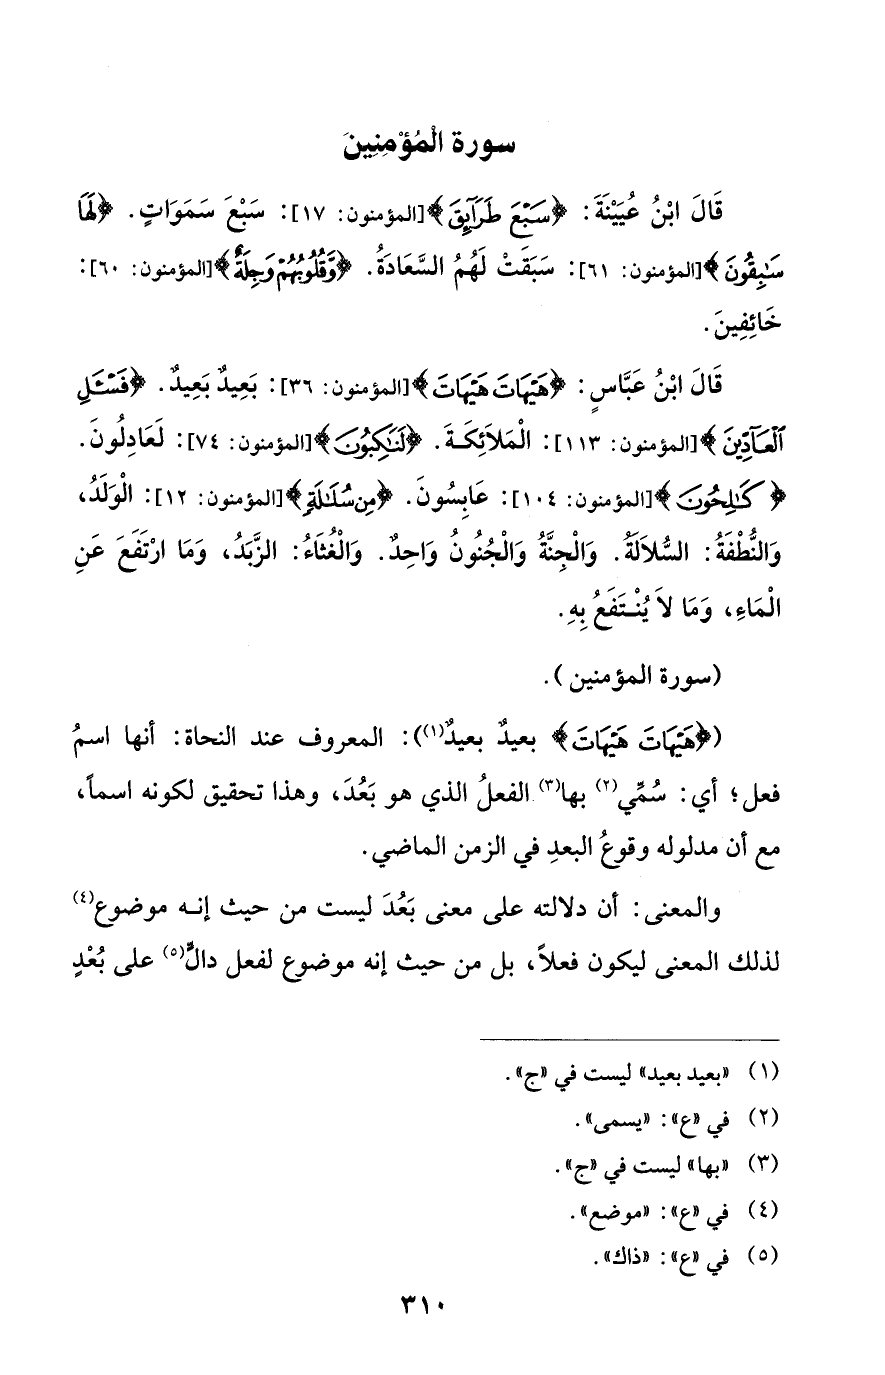 سورة الْمُؤْمِنِينَ
قَالَ ابْنُ عُيَيْنَةَ: ﴿سَبْعَ طَرَآئِقَ﴾[المؤمنون: ١٧]: سَبْعَ سَمَوَاتٍ. ﴿لَهَا
سَٰبِقُونَ﴾[المؤمنون: ٦١]: سَبَقَتْ لَهُمُ السَّعَادَةُ. ﴿وَّقُلُوبُهُمْ وَجِلَةٌ﴾[المؤمنون: ٦٠]:
خَائِفِينَ.
قَالَ ابْنُ عَبَّاسٍ: ﴿هَيْهَاتَ هَيْهَاتَ﴾[المؤمنون: ٣٦]: بَعِيدٌ بَعِيدٌ. ﴿فَسْـَٔلِ
ٱلْعَآدِّينَ﴾[المؤمنون: ١١٣]: الْمَلاَئِكَـةَ. ﴿لَنَٰكِبُونَ﴾[المؤمنون: ٧٤]: لَعَادِلُونَ.
﴿كَٰلِحُونَ﴾[المؤمنون: ١٠٤]: عَابِسُونَ. ﴿مِن سُلَٰلَةٍ﴾[المؤمنون: ١٢]: الْوَلَدُ،
وَالنُّطْفَةُ: السُّلاَلَةُ. وَالْجِنَّةُ وَالْجُنُونُ وَاحِدٌ. وَالْغُثَاءُ: الزَّبَدُ، وَمَا ارْتَفَعَ عَنِ
الْمَاءِ، وَمَا لاَ يُنْـتَفَعُ بِهِ.
(سورة المؤمنين).
(﴿هَيْهَاتَ هَيْهَاتَ﴾ بعيدٌ بعيدٌ(١)): المعروف عند النحاة: أنها اسمُ
فعل؛ أي: سُمِّي(٢) بها(٣) الفعلُ الذي هو بَعُدَ، وهذا تحقيق لكونه اسماً،
مع أن مدلوله وقوعُ البعدِ في الزمن الماضي.
والمعنى: أن دلالته على معنى بَعُدَ ليست من حيث إنـه موضوع(٤)
لذلك المعنى ليكون فعلاً، بل من حيث إنه موضوع لفعل دالٍّ(٥) على بُعْدٍ
(١) «بعيد بعيد» ليست في «ج».
(٢) في «ع»: «يسمى».
(٣) «بها» ليست في «ج».
(٤) في «ع»: «موضع».
(٥) في «ع»: «ذاك».
٣١٠